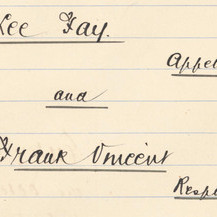 Lee Fay.
Appel
and
Frank Vincent
Respo